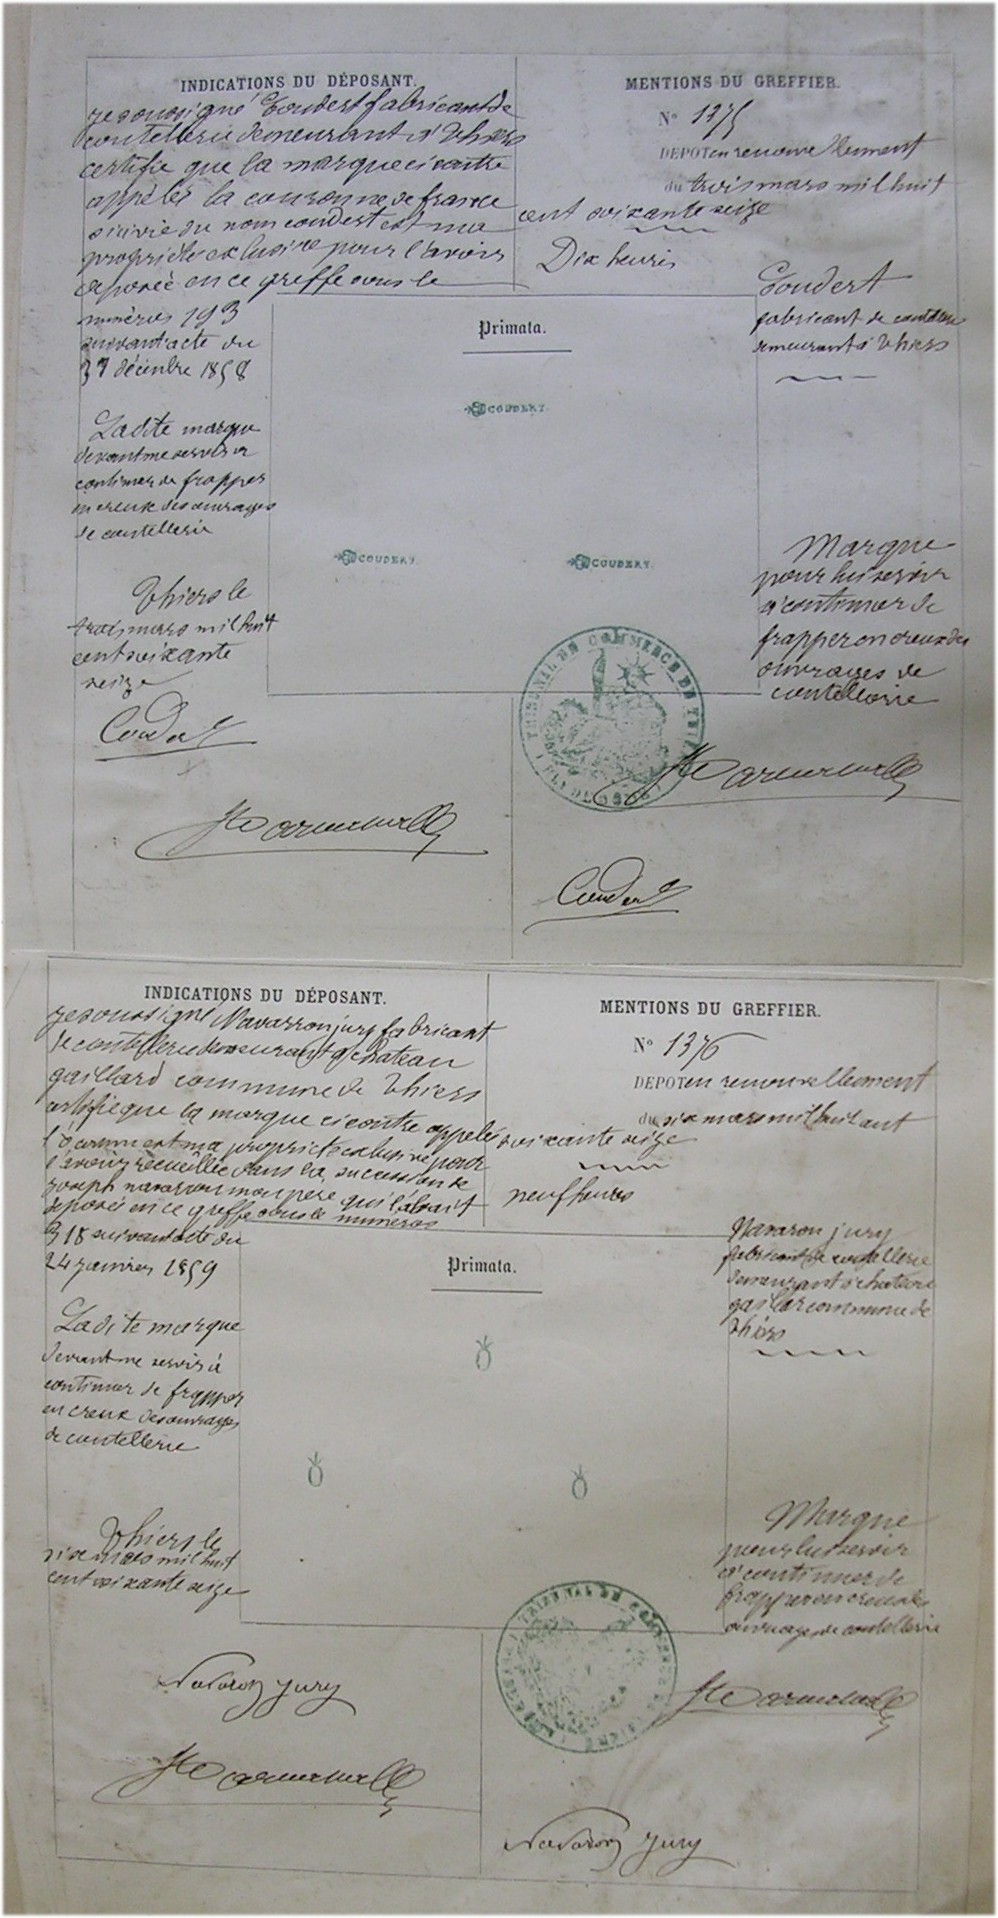 INDICATIONS DU DÉPOSANT.
je soussigné Coudert fabricant de
coutellerie demeurant à Thiers
certifie que la marque ci contre
appelée la couronne de france
suivie du nom coudert est ma
propriété exclusive pour l'avoir
déposée en ce greffe sous le
numéro 193
suivant acte du
31 décembre 1858
Ladite marque
devant me servir à
continuer de frapper
en creux des ouvrages
de coutellerie
Thiers le
trois mars mil huit
cent soixante
seize
Coudert
MENTIONS DU GREFFIER.
N° 1375
DEPOT en renouvellement
du trois mars mil huit
cent soixante seize
Dix heures
Coudert
fabricant de coutellerie
demeurant à Thiers
Primata.
COUDERT
COUDERT
COUDERT
Marque
pour lui servir
à continuer de
frapper en creux des
ouvrages de
coutellerie
TRIBUNAL DE COMMERCE DE
Coudert
INDICATIONS DU DÉPOSANT.
je soussigné Navarron jury fabricant
de coutellerie demeurant à chateau
gaillard commune de Thiers
certifie que la marque ci contre appelée
l'ô couronné est ma propriété exclusive pour
l'avoir recueillie dans la succession de
joseph navarron mon père qui l'avait
déposée en ce greffe sous le numéros
318 suivant acte du
24 janvier 1859
Ladite marque
devant me servir à
continuer de frapper
en creux des ouvrages
de coutellerie
Thiers le
six mars mil huit
cent soixante seize
Navaron jury
MENTIONS DU GREFFIER.
N° 1376
DEPOT en renouvellement
du six mars mil huit cent
soixante seize
neuf heures
Navaron jury
fabricant de coutellerie
demeurant à chateau
gaillar commune de
Thiers
Primata.
Marque
pour lui servir
à continuer de
frapper en creux des
ouvrages de coutellerie
TRIBUNAL DE COMMERCE
Navaron jury